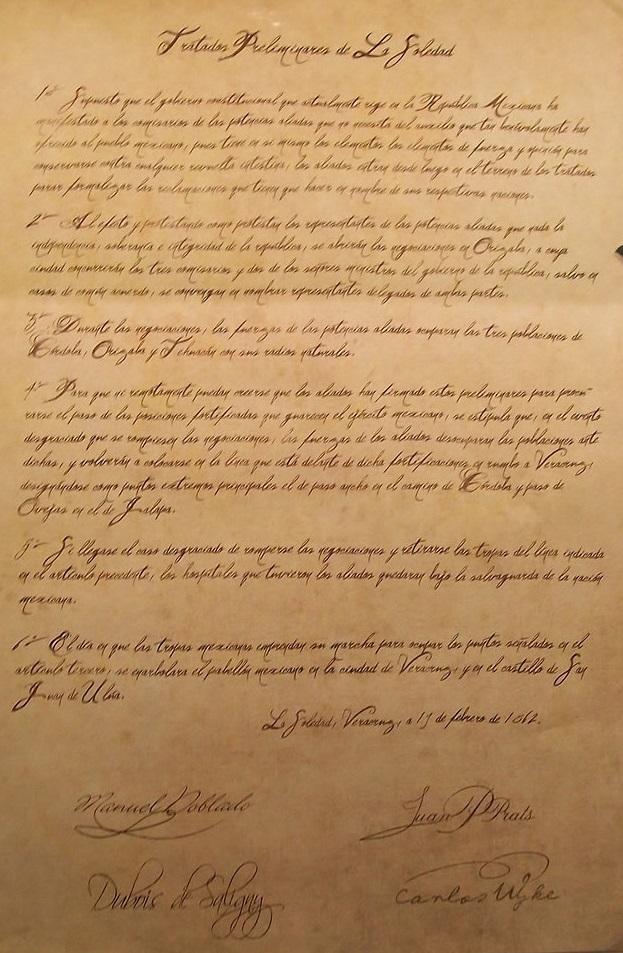 Tratados Preliminares de La Soledad
1ª Supuesto que el gobierno constitucional que actualmente rige en la República Mexicana ha
manifestado a los comisarios de las potencias aliadas que no necesita del auxilio que tan benévolamente han
ofrecido al pueblo mexicano, pues tiene en sí mismo los elementos los elementos de fuerza y opinión para
conservarse contra cualquier revuelta intestina, los aliados entran desde luego en el terreno de los tratados
parar formalizar las reclamaciones que tienen que hacer en nombre de sus respectivas naciones.
2ª Al efecto y protestando como protestan los representantes de las potencias aliadas que nada la
independencia, soberanía e integridad de la república, se abrirán las negociaciones en Orizaba, a cuya
ciudad concurrirán los tres comisarios y dos de los señores ministros del gobierno de la república, salvo en
casos de común acuerdo, se convengan en nombrar representantes delegados de ambas partes.
3ª. Durante las negociaciones, las fuerzas de las potencias aliadas ocuparan las tres poblaciones de
Córdoba, Orizaba y Tehuacán con sus radios naturales.
4ª Para que ni remotamente puedan creerse que los aliados han firmado estos preliminares para procu-
rarse el paso de las posiciones fortificadas que guarecen el ejército mexicano, se estipula que, en el evento
desgraciado que se rompiesen las negociaciones, las fuerzas de los aliados desocuparan las poblaciones ante
dichas, y volverán a colocarse en la línea que está delante de dicha fortificaciones en rumbo a Veracruz,
designándose como puntos extremos principales el de paso ancho en el camino de Córdoba y paso de
Ovejas en el de Jalapa.
5ª Si llegase el caso desgraciado de romperse las negociaciones y retirarse las tropas del línea indicada
en el artículo precedente, los hospitales que tuvieron los aliados quedaran bajo la salvaguarda de la nación
mexicana.
6ª El día en que las tropas mexicanas emprendan su marcha para ocupar los puntos señalados en el
artículo tercero, se enarbolara el pabellón mexicano en la ciudad de Veracruz, y en el castillo de San
Juan de Ulúa.
La Soledad, Veracruz, a 19 de febrero de 1862.
Manuel Doblado Juan P Prats
Dubois de Saligny Carlos Wyke